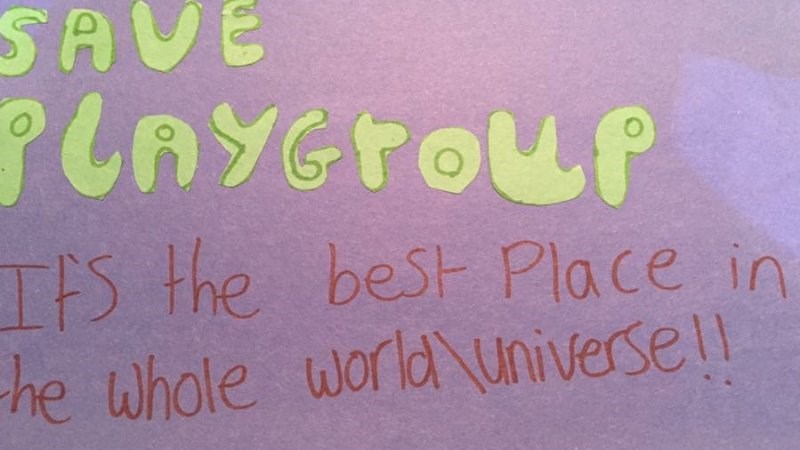 SAVE
PLAYGrouP
It's the best Place in
the whole world\universe!!